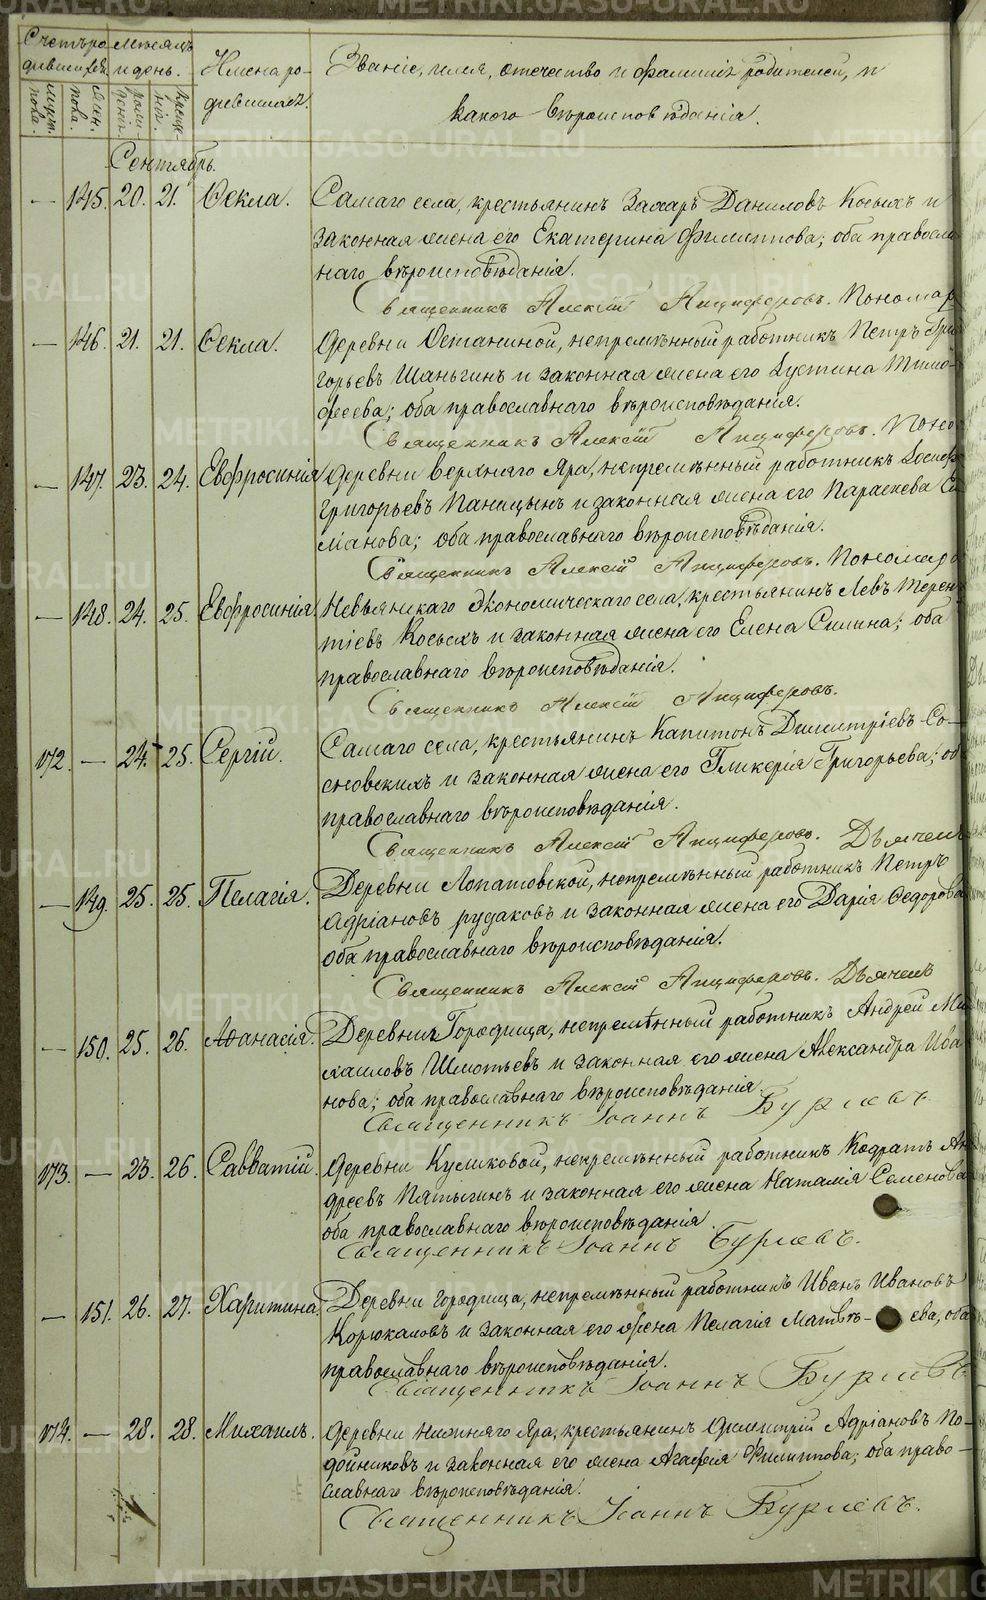 Счетъ ро- Мѣсяцъ Имена ро- Званіе, имя, отечество и фамилія родителей, и
дившихся. и день. дившихся. какого вѣроисповѣданія.
Муж. пола. Жен. пола. рожденія. крещенія.
Сентябрь.
— 145. 20. 21. Ѳекла. Самаго села, крестьянинъ Захаръ Даниловъ Косыхъ и
законная жена его Екатерина Филиппова; оба правосла-
наго вѣроисповѣданія.
Священникъ Алексій Анциферовъ. Пономар
— 146. 21. 21. Ѳекла. Деревни Останиной, непремѣнный работникъ Петръ Гри-
горьевъ Шаньгинъ и законная жена его Іустина Тимо-
феева; оба православнаго вѣроисповѣданія.
Священникъ Алексій Анциферовъ. Поно
— 147. 23. 24. Евфросинія Деревни Верхняго Яра, непремѣнный работникъ Іосифъ
Григорьевъ Паницынъ и законная жена его Параскева Си
манова; оба православнаго вѣроисповѣданія.
Священникъ Алексій Анциферовъ. Пономарь
— 148. 24. 25. Евфросинія. Невьянскаго Экономическаго села, крестьянинъ Левъ Терен-
тіевъ Косыхъ и законная жена его Елена Силина; оба
православнаго вѣроисповѣданія.
Священникъ Алексій Анциферовъ.
172. — 24. 25. Сергій. Самаго села, крестьянинъ Капитонъ Димитріевъ Со-
сновскихъ и законная жена его Гликерія Григорьева; об
православнаго вѣроисповѣданія.
Священникъ Алексій Анциферовъ. Дьячекъ
— 149. 25. 25. Пелагія. Деревни Лопатовской, непремѣнный работникъ Петръ
Адріановъ Рудаковъ и законная жена его Дарія Ѳедорова
оба православнаго вѣроисповѣданія.
Священникъ Алексій Анциферовъ. Дьячекъ
— 150. 25. 26. Аѳанасія. Деревни Городища, непремѣнный работникъ Андрей Ми
хаиловъ и законная его жена Александра Ива
нова; оба православнаго вѣроисповѣданія
Священникъ Іоаннъ Бурлевъ.
173. — 23. 26. Савватій. Деревни Куликовой, непремѣнный работникъ Кодратъ Ан
дреевъ Пятыгинъ и законная его жена Наталія Семенова
оба православнаго вѣроисповѣданія.
Священникъ Іоаннъ Бурлевъ.
— 151. 26. 27. Харитина. Деревни Городища, непремѣнный работникъ Иванъ Ивановъ
Корюкаловъ и законная его жена Пелагія Матвѣ- ева, оба
православнаго вѣроисповѣданія.
Священникъ Іоаннъ Бурлевъ
174. — 28. 28. Михаилъ. Деревни Нижняго Яра, крестьянинъ Димитрій Адріановъ По-
дойниковъ и законная его жена Агафія Филиппова; оба право-
славнаго вѣроисповѣданія.
Священникъ Іоаннъ Бурлевъ.